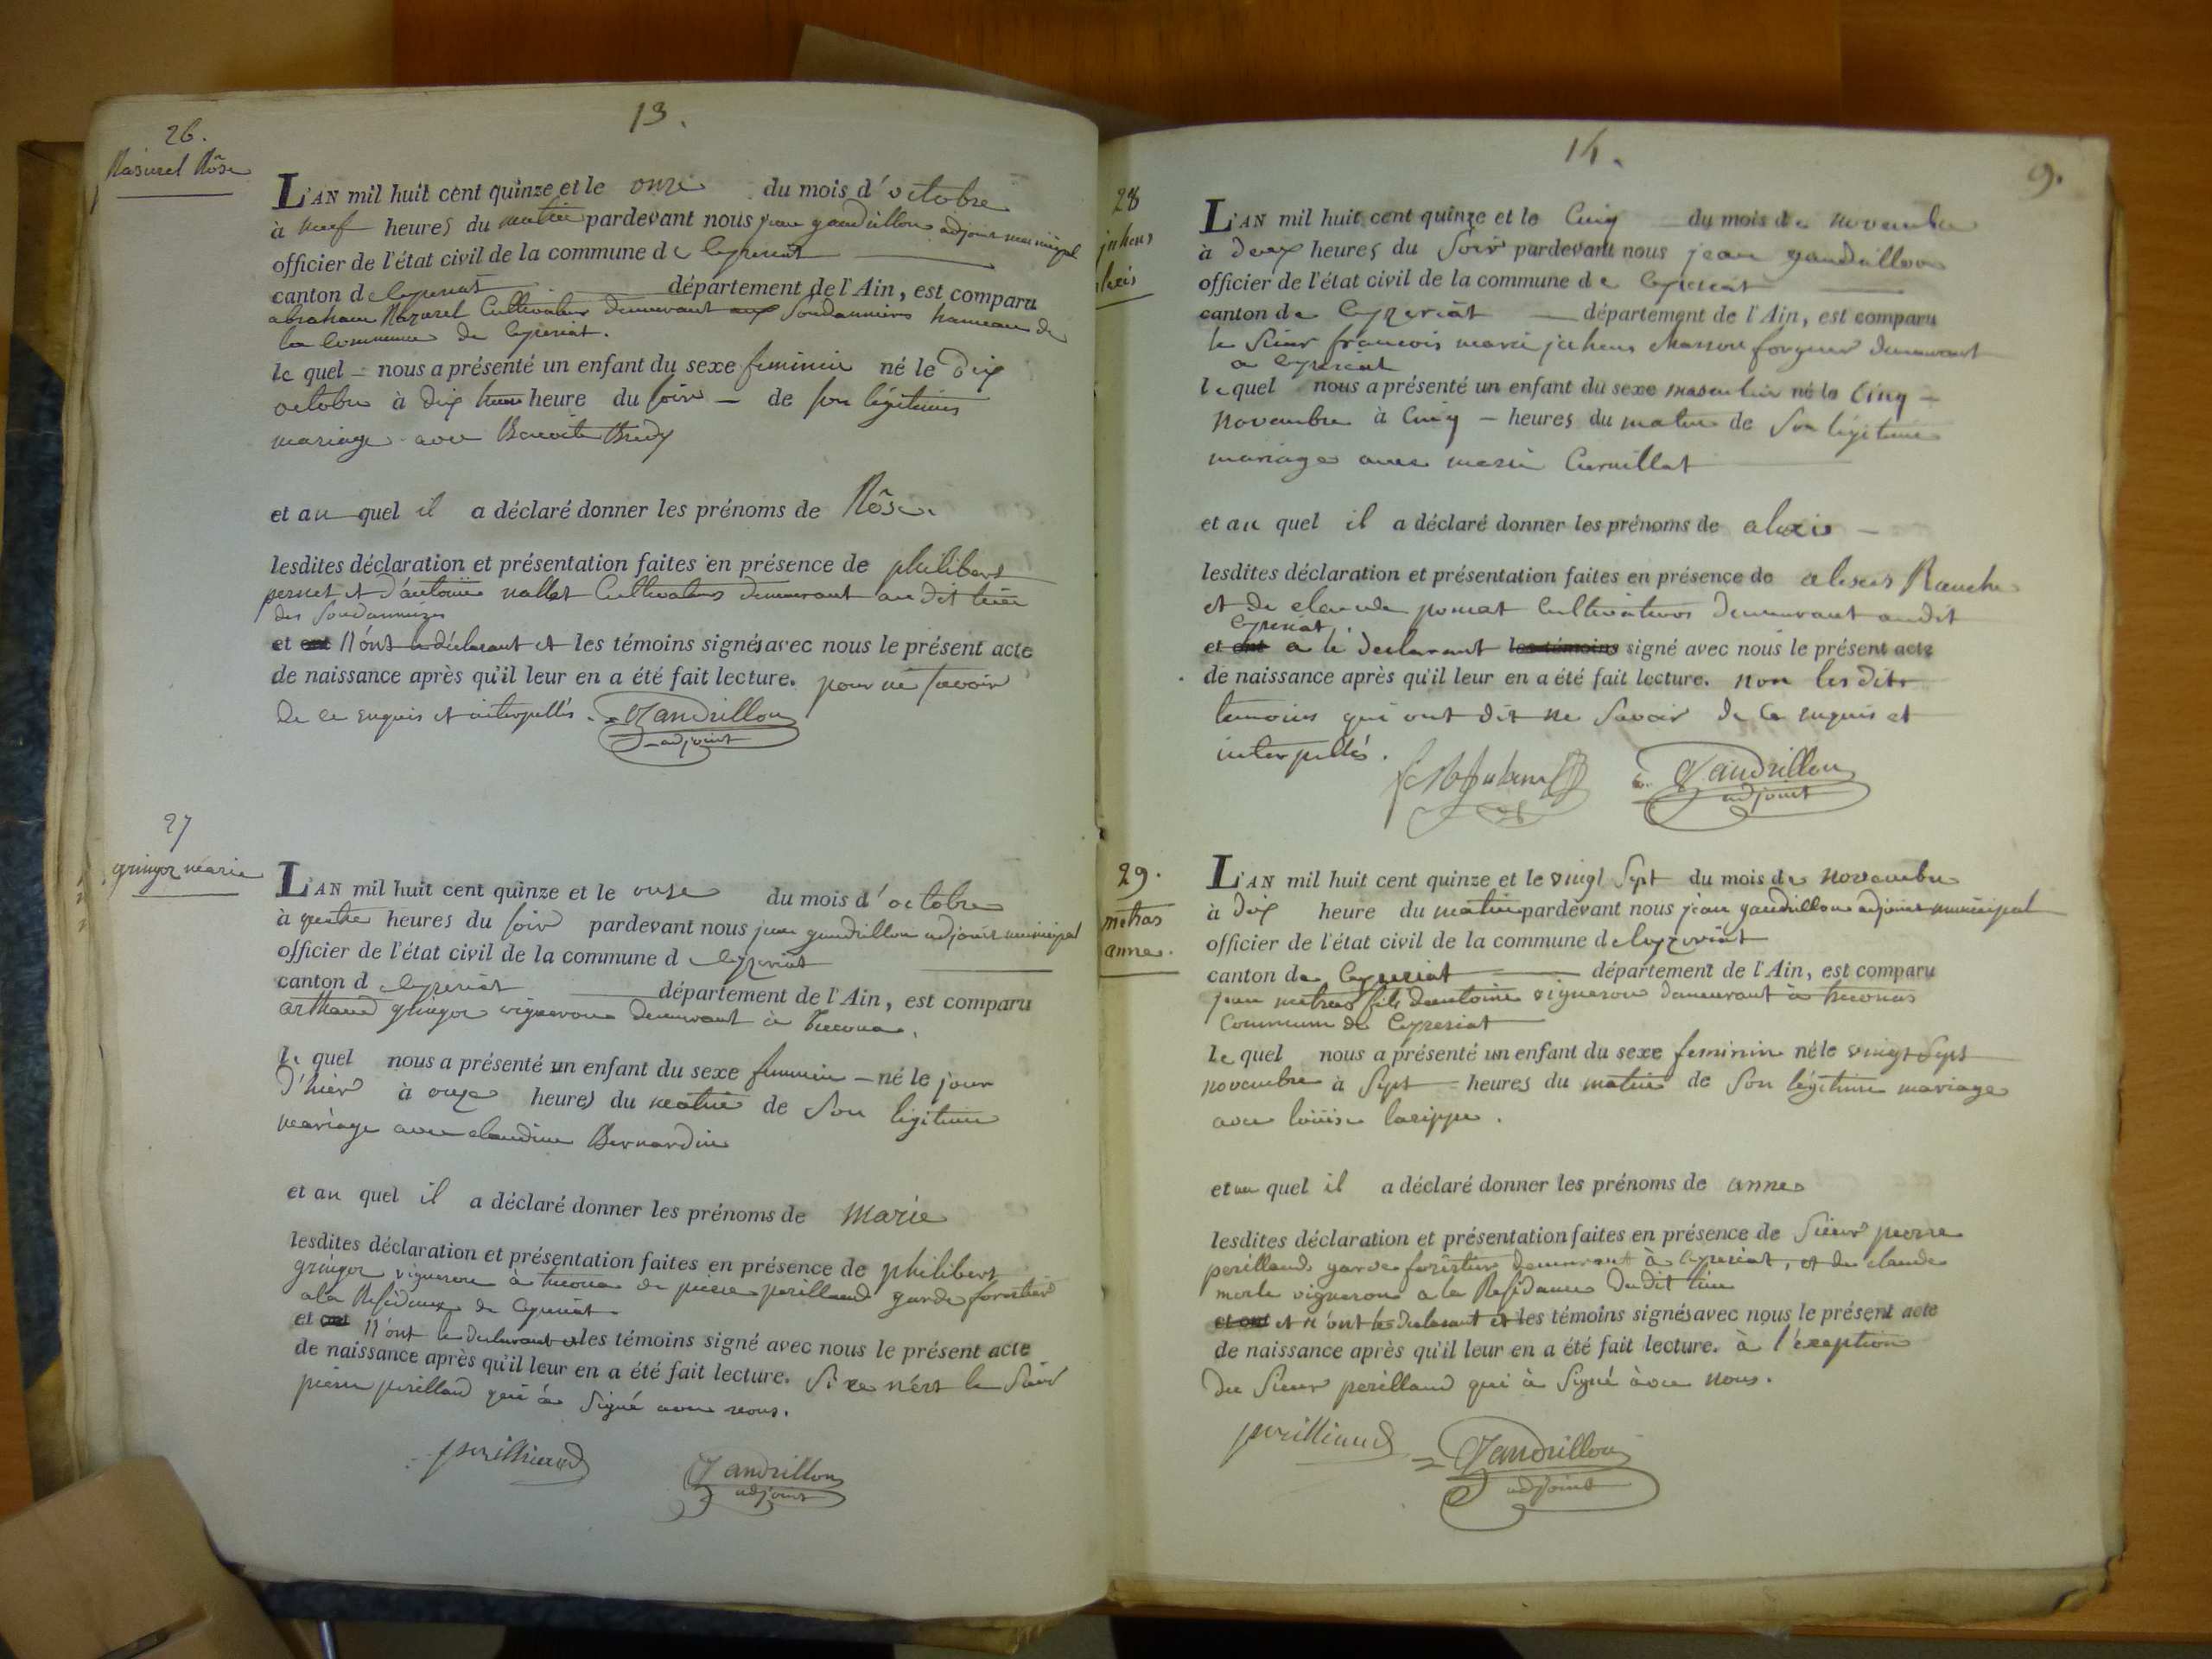 13.
26.
Nasurel Rôse
L'AN mil huit cent quinze et le onze du mois d'octobre
à neuf heures du matin pardevant nous jean gandrillon adjoint municipal
officier de l'état civil de la commune de Ceyzeriat
canton de Ceyzeriat département de l'Ain, est comparu
abraham Nazurel Cultivateur demeurant aux Soudanniers hameau de
la Commune de Ceyzeriat.
le quel nous a présenté un enfant du sexe feminin né le Dix
octobre à dix heure du soir de son légitimes
mariage avec Benoite
et au quel il a déclaré donner les prénoms de Rôse.
lesdites déclaration et présentation faites en présence de philibert
pernet et d'antoine nallet Cultivateurs demeurant au dit lieu
des Soudanniers
et n'ont le déclarant et les témoins signés avec nous le présent acte
de naissance après qu'il leur en a été fait lecture. pour ne savoir
de ce enquis et interpellés. Gandrillon
adjoint
27
gringoz marie
L'AN mil huit cent quinze et le onze du mois d'octobre
à quatre heures du soir pardevant nous jean gandrillon adjoint municipal
officier de l'état civil de la commune de Ceyzeriat
canton de Ceyzeriat département de l'Ain, est comparu
arthaud gringoz vigneron demeurant à treconas.
le quel nous a présenté un enfant du sexe feminin né le jour
d'hier à onze heures du matin de Son légitime
mariage avec claudine Bernardin
et au quel il a déclaré donner les prénoms de Marie
lesdites déclaration et présentation faites en présence de philibert
gringoz vigneron à treconas de pierre perilland garde forestier
a la Résidence de Ceyzeriat
et n'ont le declarant et les témoins signé avec nous le présent acte
de naissance après qu'il leur en a été fait lecture. Si ce n'est le Said
pierre perilland qui à Signé avec nous.
perilliand Gandrillon
adjoint
14.
9.
28
juhens
alexis
L'AN mil huit cent quinze et le Cinq du mois de novembre
à deux heures du Soir pardevant nous jean gandrillon
officier de l'état civil de la commune de Ceyzeriat
canton de Ceyzeriat département de l'Ain, est comparu
le Sieur francois marie juhens demeurant
a Ceyzeriat
le quel nous a présenté un enfant du sexe masculin né le Cinq
Novembre à Cinq heures du matin de Son légitime
mariage avec marie Curnillat
et au quel il a déclaré donner les prénoms de alexis
lesdites déclaration et présentation faites en présence de alexis
et de claude pomat Cultivateurs demeurant audit
Ceyzeriat.
et ont a le declarant les témoins signé avec nous le présent acte
de naissance après qu'il leur en a été fait lecture. non les dits
temoins qui ont dit ne Savoir de Ce enquis et
interpellés.
Gandrillon
adjoint
29.
metras
anne.
L'AN mil huit cent quinze et le vingt Sept du mois de novembre
à dix heure du matin pardevant nous jean gandrillon adjoint municipal
officier de l'état civil de la commune de Ceyzeriat
canton de Ceyzeriat département de l'Ain, est comparu
jean metras fils d'antoine vigneron demeurant à treconas
Commune de Ceyzeriat
le quel nous a présenté un enfant du sexe feminin né le vingt Sept
novembre à Sept heures du matin de Son légitime mariage
avec louise larippe.
et au quel il a déclaré donner les prénoms de anne
lesdites déclaration et présentation faites en présence de Sieur pierre
perilland garde forestier demeurant à Ceyzeriat, et de claude
morle vigneron a la Résidance du dit lieu
et ont et n'ont le declarant et les témoins signés avec nous le présent acte
de naissance après qu'il leur en a été fait lecture. à l'éxeption
du Sieur perilland qui à Signé àvec nous.
perilliand Gandrillon
adjoint